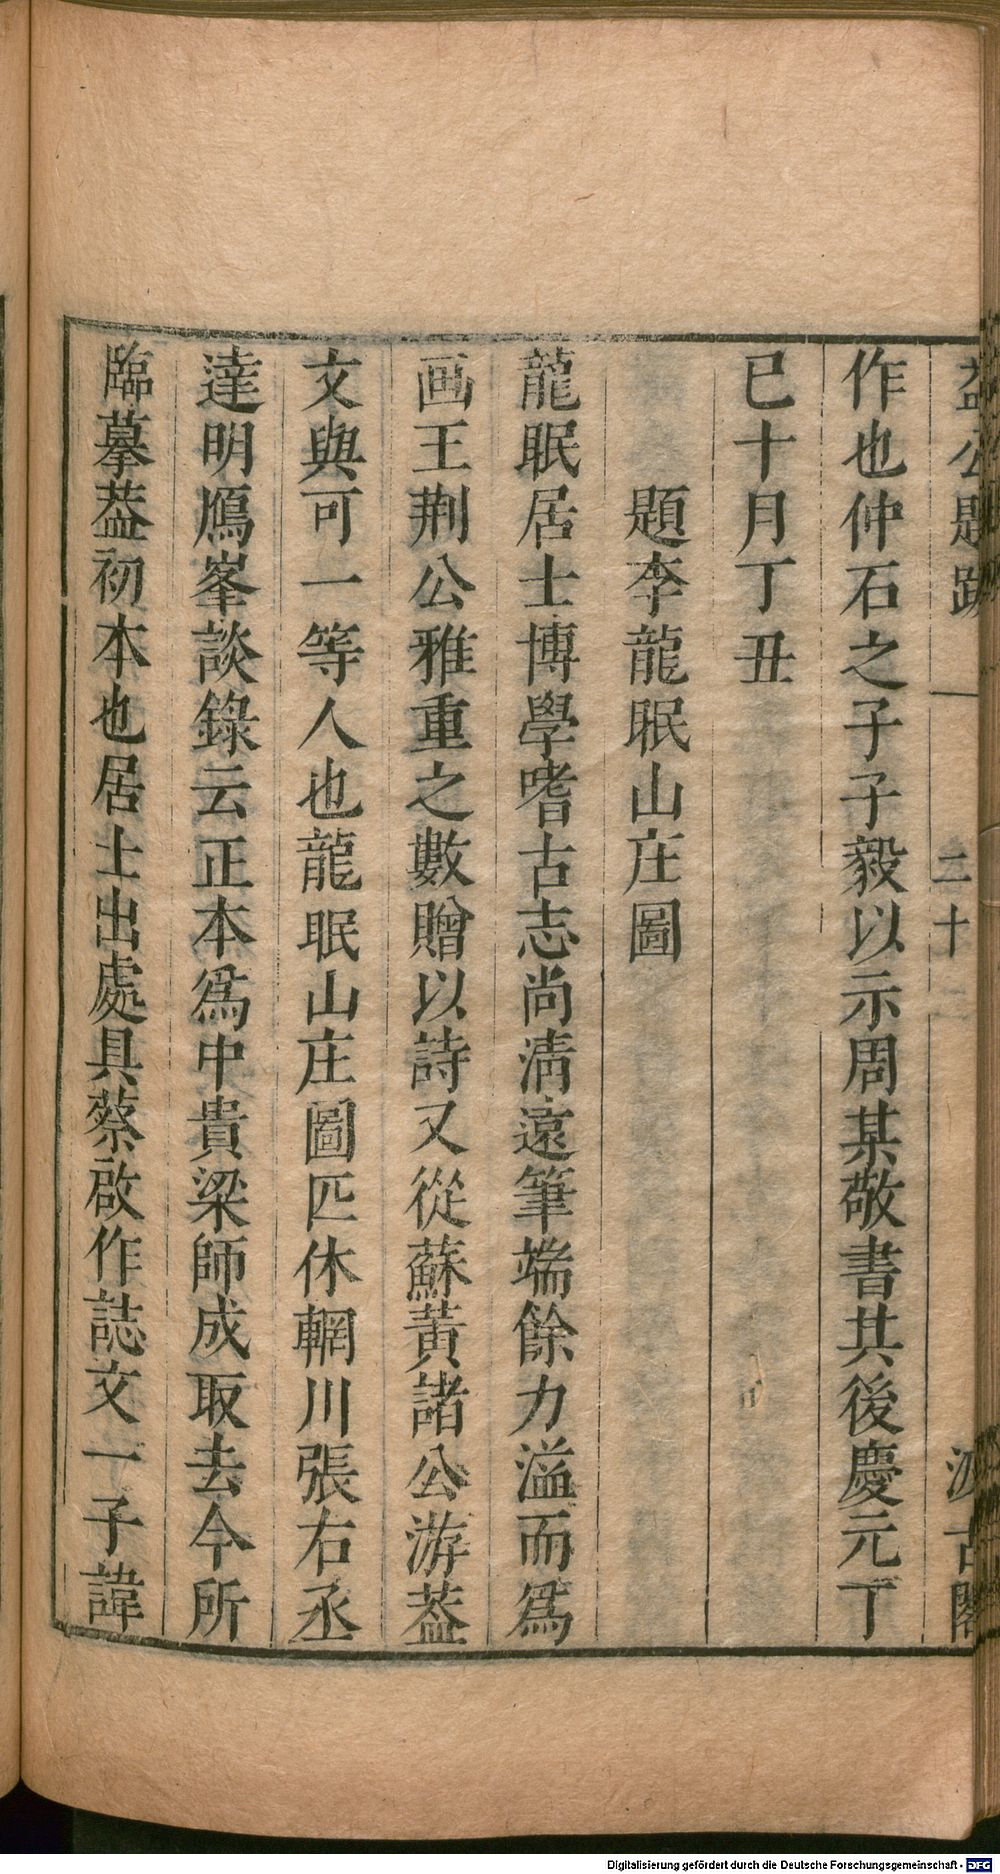 益公題跋 二十 汲古閣
作也仲石之子子毅以示周某敬書其後慶元丁
巳十月丁丑
題李龍眠山庄圖
龍眠居士博學嗜古志尚淸遠筆端餘力溢而爲
画王荆公雅重之數贈以詩又從蘇黃諸公游葢
文與可一等人也龍眠山庄圖匹休輞川張右丞
達明鴈峯談錄云正本爲中貴梁師成取去今所
臨摹葢初本也居士出處具蔡啟作誌文一子諱
Digitalisierung gefördert durch die Deutsche Forschungsgemeinschaft - DFG